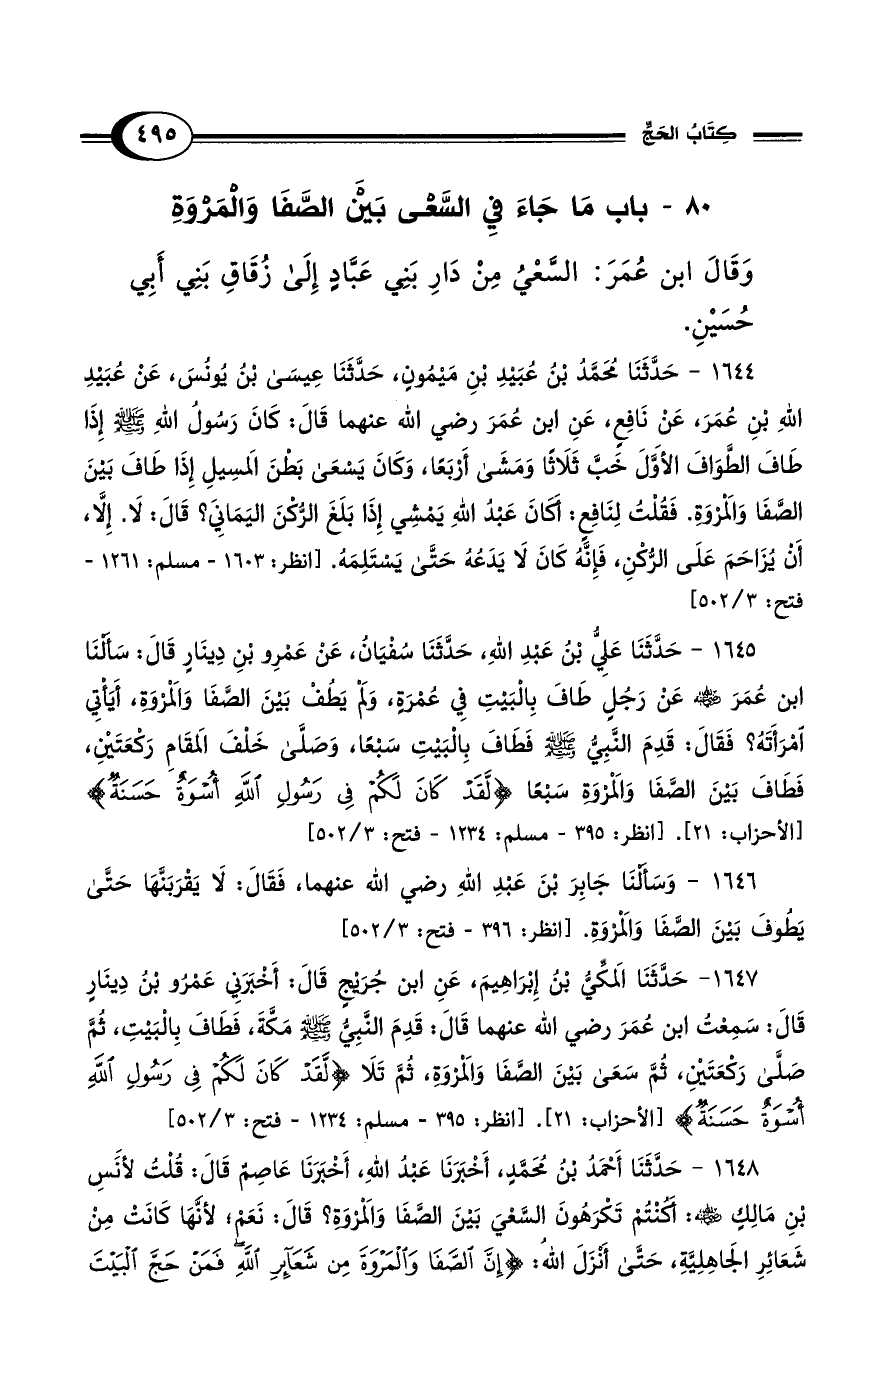 كِتَابُ الحَجِّ ٤٩٥
٨٠ - باب مَا جَاءَ فِي السَّعْىِ بَيْنَ الصَّفَا وَالْمَرْوَةِ
وَقَالَ ابن عُمَرَ: السَّعْيُ مِنْ دَارِ بَنِي عَبَّادٍ إِلَىٰ زُقَاقِ بَنِي أَبِي
حُسَيْنٍ.
١٦٤٤ - حَدَّثَنَا مُحَمَّدُ بْنُ عُبَيْدِ بْنِ مَيْمُونٍ، حَدَّثَنَا عِيسَىٰ بْنُ يُونُسَ، عَنْ عُبَيْدِ
اللهِ بْنِ عُمَرَ، عَنْ نَافِعٍ، عَنِ ابن عُمَرَ رضي الله عنهما قَالَ: كَانَ رَسُولُ اللهِ ﷺ إِذَا
طَافَ الطَّوَافَ الأَوَّلَ خَبَّ ثَلَاثًا وَمَشَىٰ أَرْبَعًا، وَكَانَ يَسْعَىٰ بَطْنَ المَسِيلِ إِذَا طَافَ بَيْنَ
الصَّفَا وَالْمَرْوَةِ. فَقُلْتُ لِنَافِعٍ: أَكَانَ عَبْدُ اللهِ يَمْشِي إِذَا بَلَغَ الرُّكْنَ اليَمَانِيَ؟ قَالَ: لَا. إِلَّا،
أَنْ يُزَاحَمَ عَلَى الرُّكْنِ، فَإِنَّهُ كَانَ لَا يَدَعُهُ حَتَّىٰ يَسْتَلِمَهُ. [انظر: ١٦٠٣ - مسلم: ١٢٦١ -
فتح: ٣/ ٥٠٢]
١٦٤٥ - حَدَّثَنَا عَلِيُّ بْنُ عَبْدِ اللهِ، حَدَّثَنَا سُفْيَانُ، عَنْ عَمْرِو بْنِ دِينَارٍ قَالَ: سَأَلْنَا
ابن عُمَرَ ﵁ عَنْ رَجُلٍ طَافَ بِالْبَيْتِ فِي عُمْرَةٍ، وَلَمْ يَطُفْ بَيْنَ الصَّفَا وَالْمَرْوَةِ، أَيَأْتِي
ٱمْرَأَتَهُ؟ فَقَالَ: قَدِمَ النَّبِيُّ ﷺ فَطَافَ بِالْبَيْتِ سَبْعًا، وَصَلَّىٰ خَلْفَ المَقَامِ رَكْعَتَيْنِ،
فَطَافَ بَيْنَ الصَّفَا وَالْمَرْوَةِ سَبْعًا ﴿لَّقَدْ كَانَ لَكُمْ فِى رَسُولِ ٱللَّهِ أُسْوَةٌ حَسَنَةٌ﴾
[الأحزاب: ٢١]. [انظر: ٣٩٥ - مسلم: ١٢٣٤ - فتح: ٣/ ٥٠٢]
١٦٤٦ - وَسَأَلْنَا جَابِرَ بْنَ عَبْدِ اللهِ رضي الله عنهما، فَقَالَ: لَا يَقْرَبَنَّهَا حَتَّىٰ
يَطُوفَ بَيْنَ الصَّفَا وَالْمَرْوَةِ. [انظر: ٣٩٦ - فتح: ٣/ ٥٠٢]
١٦٤٧- حَدَّثَنَا المَكِّيُّ بْنُ إِبْرَاهِيمَ، عَنِ ابن جُرَيْجٍ قَالَ: أَخْبَرَنِي عَمْرُو بْنُ دِينَارٍ
قَالَ: سَمِعْتُ ابن عُمَرَ رضي الله عنهما قَالَ: قَدِمَ النَّبِيُّ ﷺ مَكَّةَ، فَطَافَ بِالْبَيْتِ، ثُمَّ
صَلَّىٰ رَكْعَتَيْنِ، ثُمَّ سَعَىٰ بَيْنَ الصَّفَا وَالْمَرْوَةِ، ثُمَّ تَلَا ﴿لَّقَدْ كَانَ لَكُمْ فِى رَسُولِ ٱللَّهِ
أُسْوَةٌ حَسَنَةٌ﴾ [الأحزاب: ٢١]. [انظر: ٣٩٥ - مسلم: ١٢٣٤ - فتح: ٣/ ٥٠٢]
١٦٤٨ - حَدَّثَنَا أَحْمَدُ بْنُ مُحَمَّدٍ، أَخْبَرَنَا عَبْدُ اللهِ، أَخْبَرَنَا عَاصِمٌ قَالَ: قُلْتُ لأَنَسِ
بْنِ مَالِكٍ ﵁: أَكُنْتُمْ تَكْرَهُونَ السَّعْيَ بَيْنَ الصَّفَا وَالْمَرْوَةِ؟ قَالَ: نَعَمْ؛ لأَنَّهَا كَانَتْ مِنْ
شَعَائِرِ الجَاهِلِيَّةِ، حَتَّىٰ أَنْزَلَ اللهُ: ﴿إِنَّ ٱلصَّفَا وَٱلْمَرْوَةَ مِن شَعَآئِرِ ٱللَّهِۖ فَمَنْ حَجَّ ٱلْبَيْتَ